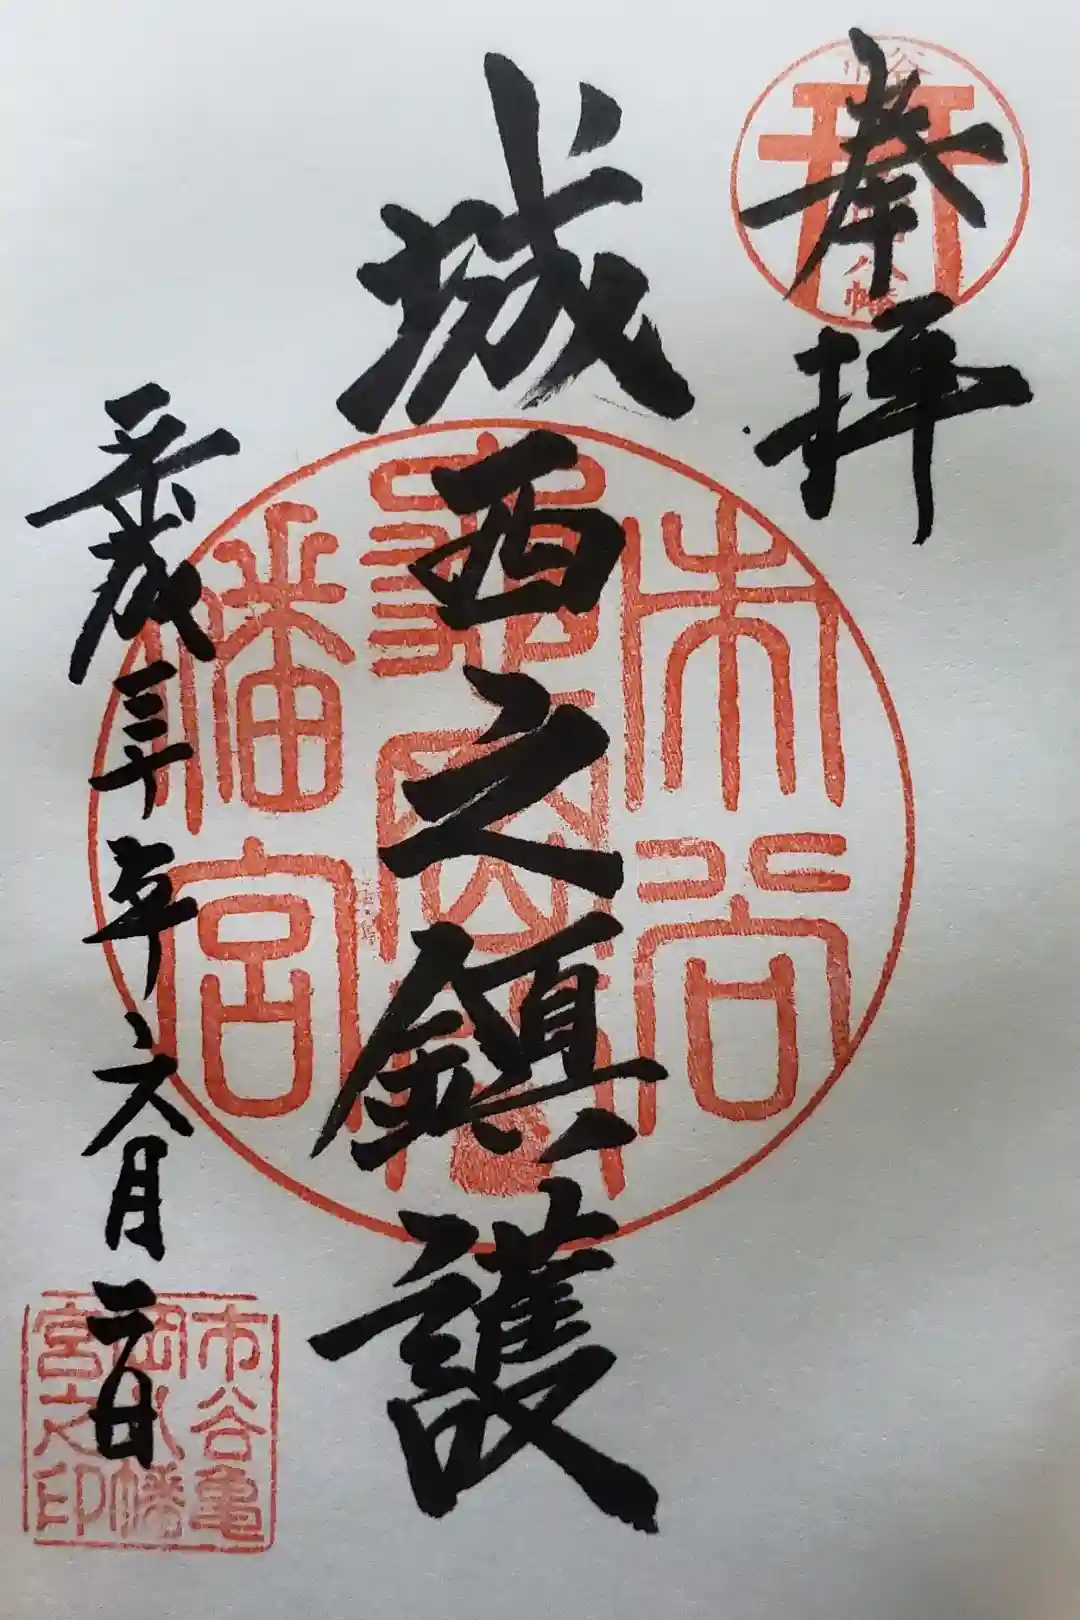 奉拝
城西之鎮護
平成三十年六月二日
市谷
八幡
市谷
亀岡八
幡宮
市谷亀
岡八幡
宮之印